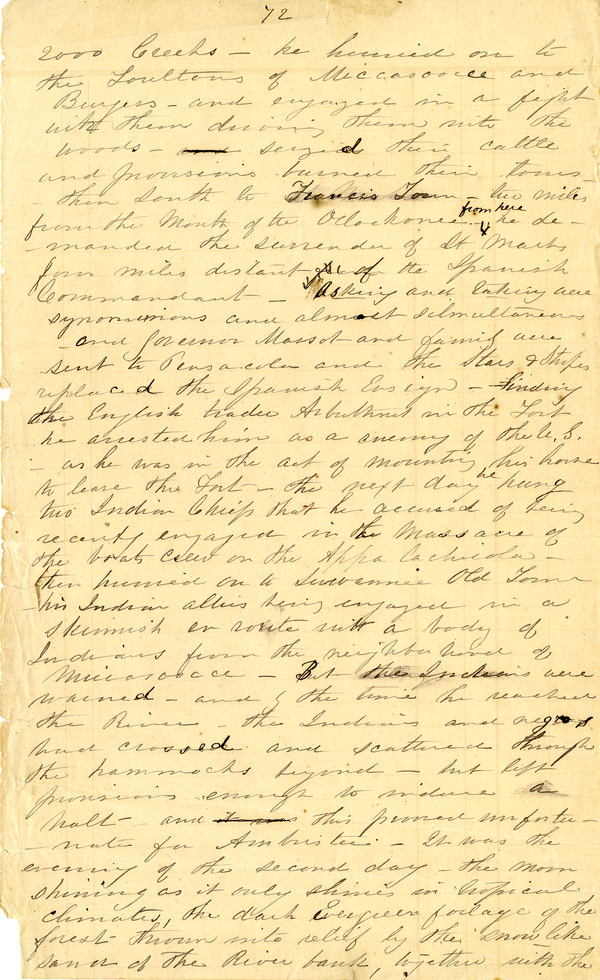 72
2000 Creeks – he hurried on to
the Foultons of Miccasoocee and
Burgers – and engaged in a fight
with them driving them into the
woods – and seized their cattle
and provisions burned their towns
then south to Francis Town two miles
from the Mouth of the Oclockonee from here he de-
-manded the surrender of St Marks
four miles distant of the Spanish
Commandant – Asking and taking were
synonimious and almost silmultaneous
– and Governor Massot and family were
sent to Pensacola and the Stars & Stripes
replaced the Spanish Ensign – finding
the English trader Arbuthnot in the Fort
he arrested him as a enemy of the U.S.
– as he was in the act of mounting his horse
to leave the Fort – the next day he hung
two Indian Chiefs that he accused of being
recently engaged in the Massacre of
the boats crew on the Appa Cachicola –
then hurried on to Suwannee Old Town
– his Indian allies being engaged in a
skirmish en route with a body of
Indians from the neighborhood of
Miccasoocee – But the Indians were
warned – and by the time he reached
the River – the Indians and negros
had crossed and scattered through
the hammocks beyond – but left
provisions enough to induce a
halt – and it was this proved unfortu-
-nate for Ambrister – It was the
evening of the second day – the moon
shining as it only shines in tropical
climates, the dark Evergreen foilage of the
forest thrown into relief by the snow like
sand of the River bank, together with the